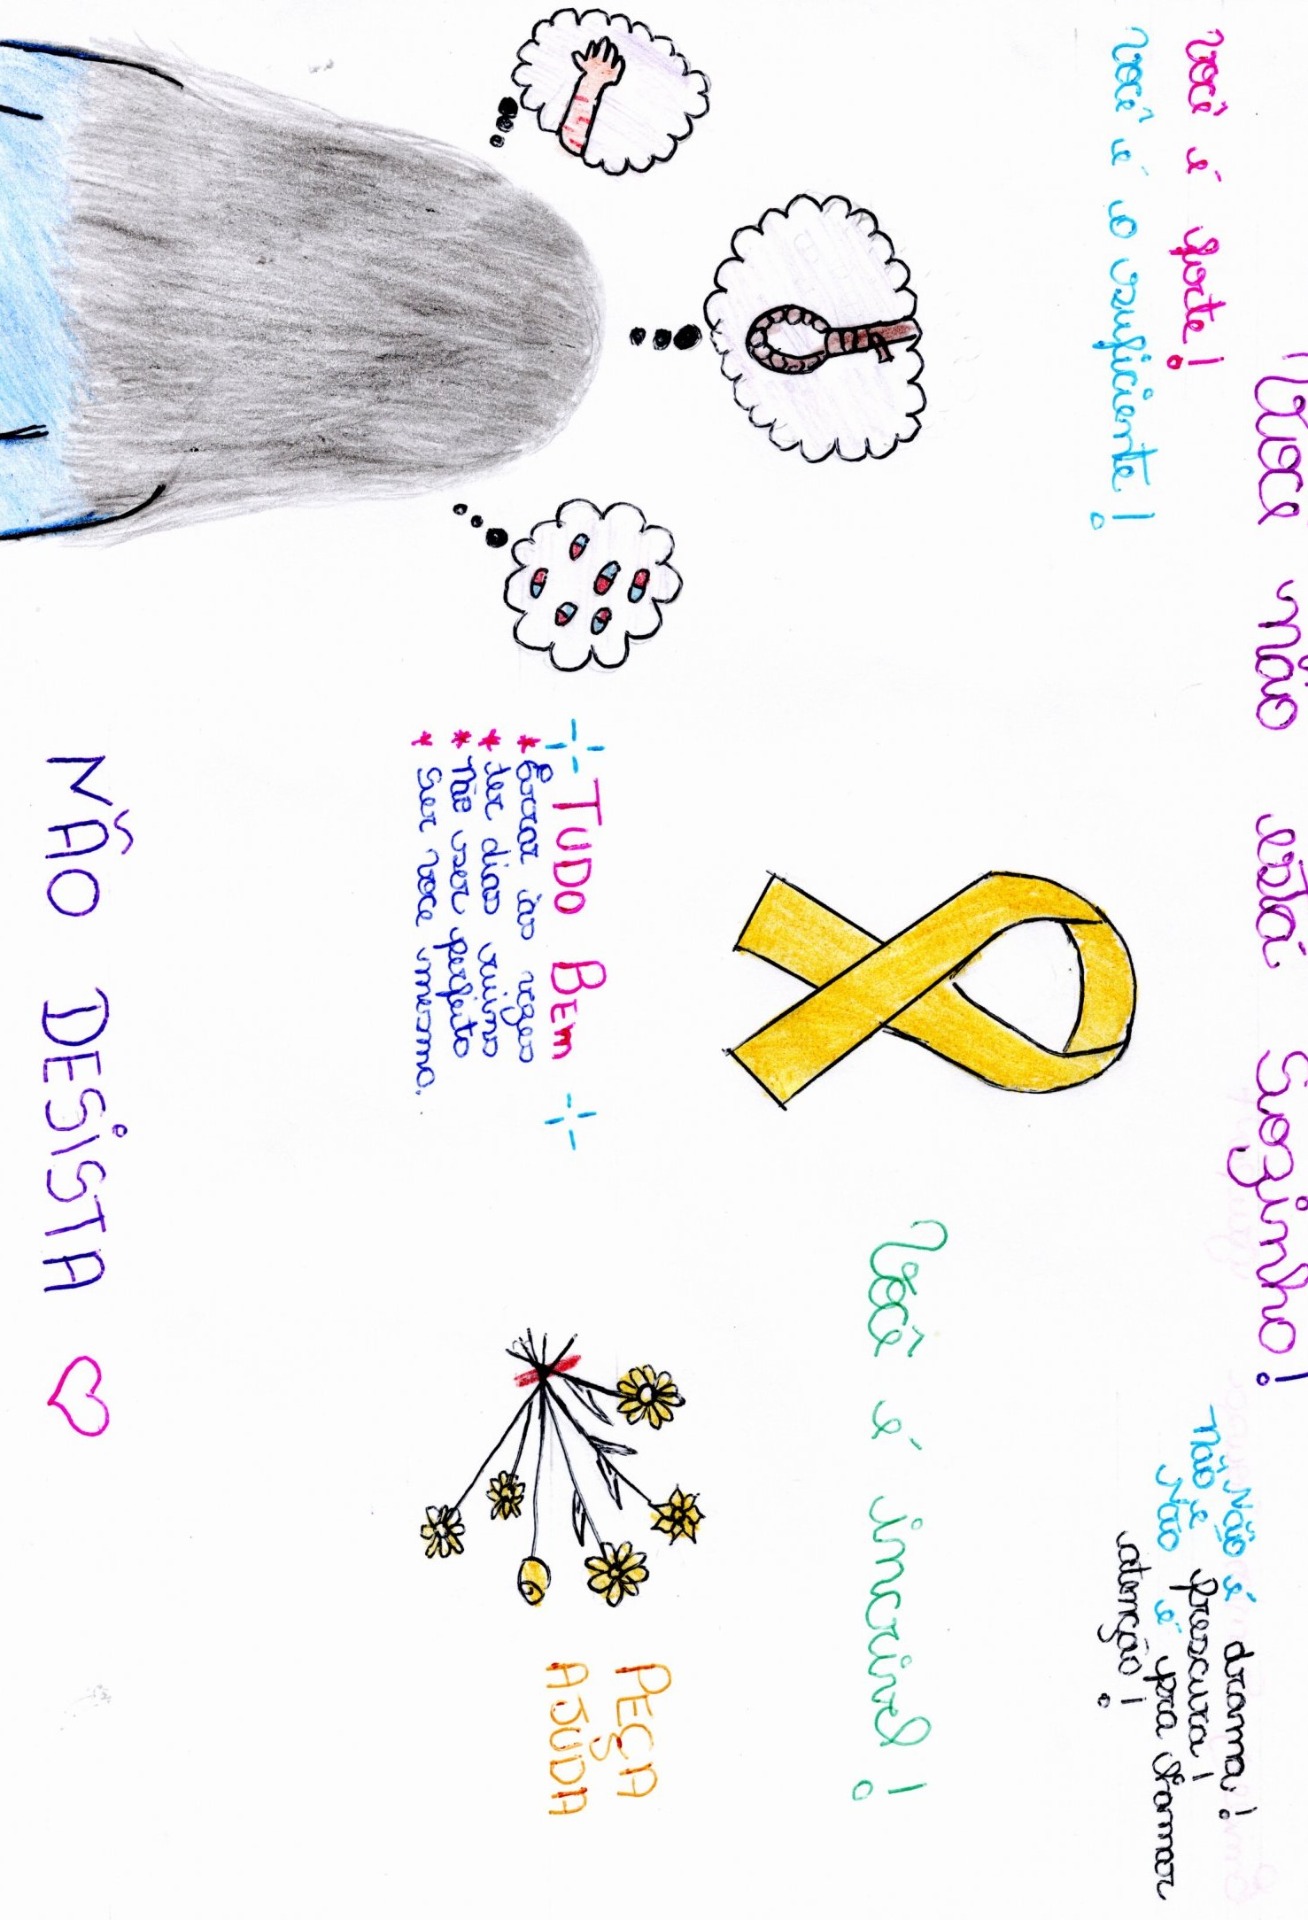 Você não está Sozinho!
Você é forte!
Você é o suficiente!
Não é drama!
Não é frescura!
Não é pra chamar
atenção!
Você é incrivel!
TUDO BEM
* Errar às vezes
* ter dias ruins
* Não ser perfeito
* Ser você mesmo.
PEÇA
AJUDA
NÃO DESISTA